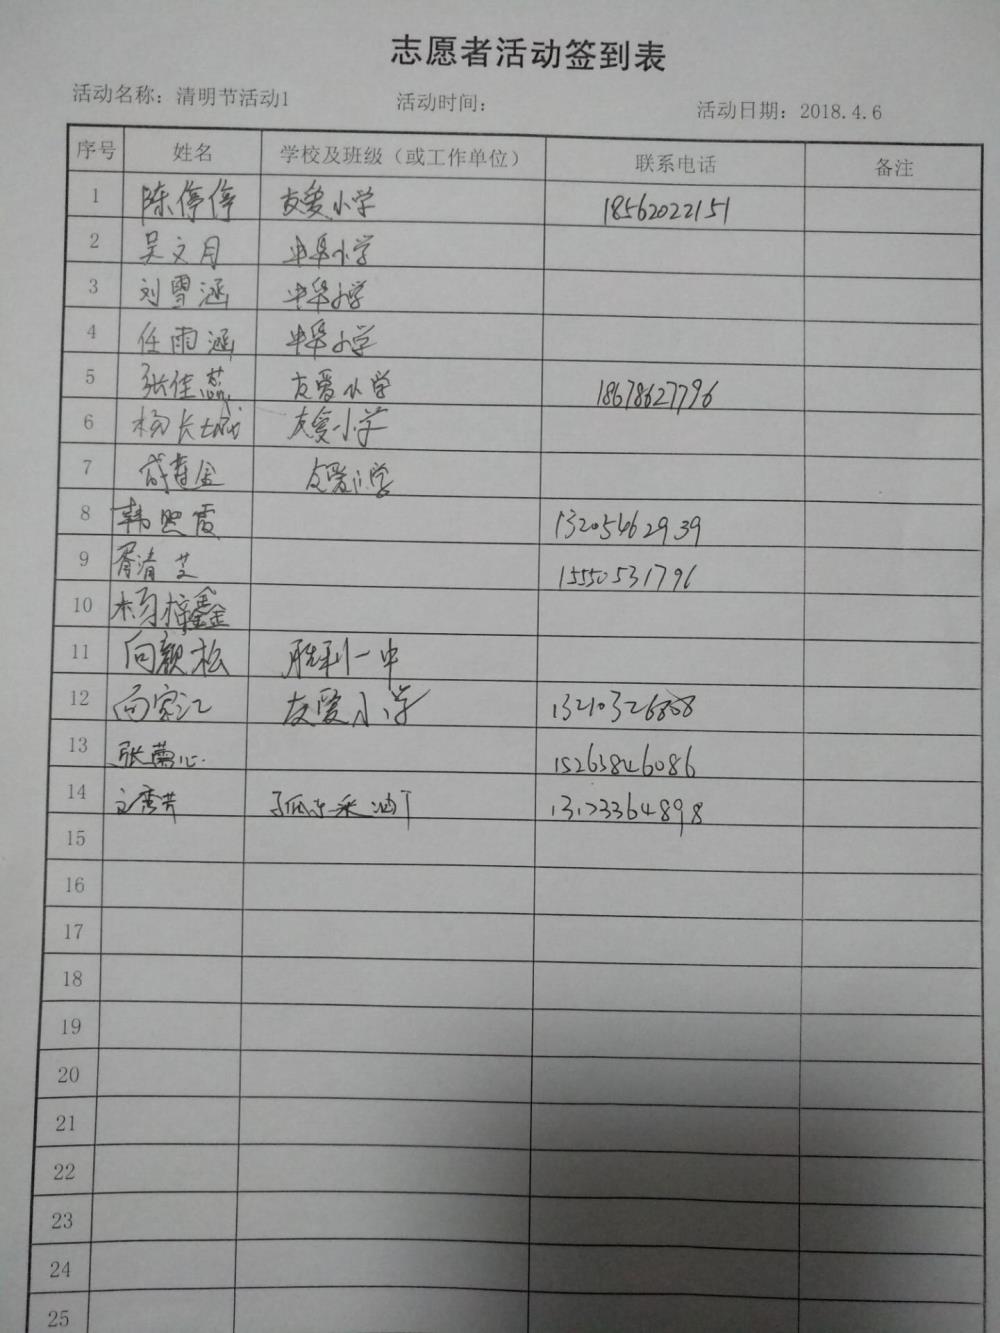 志愿者活动签到表
活动名称：清明节活动1 活动时间： 活动日期：2018.4.6
序号 姓名 学校及班级（或工作单位） 联系电话 备注
1 陈停停 友爱小学 18562022151
2 吴文月 中华小学
3 刘雪涵 中华小学
4 任雨涵 中华小学
5 张佳蕊 友爱小学 18678627796
6 杨长城 友爱小学
7 友爱小学
8 韩照霞 13205462939
9 胥清芝 15550531796
10 杨梓鑫
11 向颖松 胜利一中
12 向家江 友爱小学 13210326808
13 张蕾心 15263846086
14 孤东采油厂
15
16
17
18
19
20
21
22
23
24
25